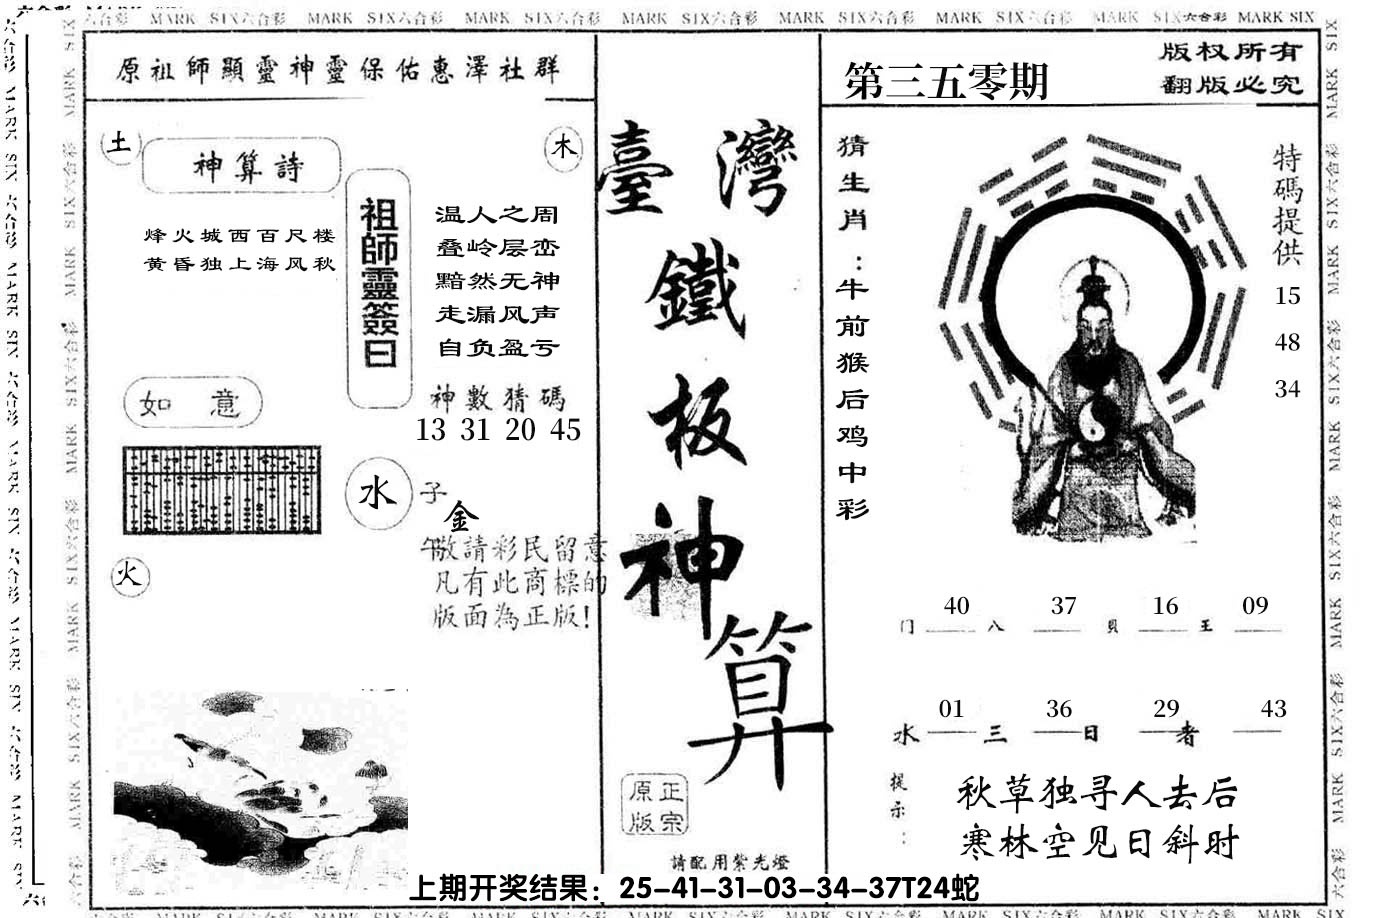 六合彩 MARK SIX六合彩 MARK SIX六合彩 MARK SIX六合彩 MARK SIX六合彩 MARK SIX六合彩 MARK SIX六合彩 MARK SIX六合彩 MARK SIX
原祖師顯靈神靈保佑惠澤社群
土
神算詩
木
烽火城西百尺楼
黄昏独上海风秋
祖師靈簽曰
温人之周
叠岭层峦
黯然无神
走漏风声
自负盈亏
神數猜碼
13 31 20 45
如 意
水
子
金
午
敬請彩民留意
凡有此商標的
版面為正版!
火
臺灣
鐵
板
神
算
正宗
原版
請配用紫光燈
第三五零期
版权所有
翻版必究
猜生肖:牛前猴后鸡中彩
特碼提供
15
48
34
40 37 16 09
门 八 贝 王
01 36 29 43
水 三 日 者
提示:
秋草独寻人去后
寒林空见日斜时
上期开奖结果：25-41-31-03-34-37T24蛇